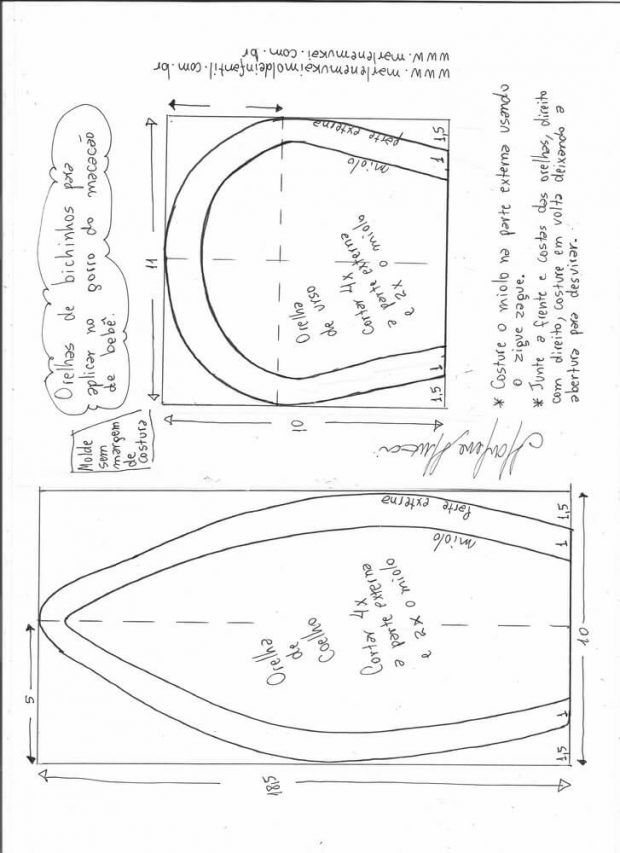 www.marlenemukai.com.br
www.marlenemukaimoldeinfantil.com.br
Orelhas de bichinhos para
aplicar no gorro do macacão
de bebê.
Molde
sem
margem
de
costura
11
10
parte externa
miolo
1,5
1
Orelha
de urso
Cortar 4x
a parte externa
e 2x o miolo
1
1,5
* Costure o miolo na parte externa usando
o zigue zague.
* Junte a frente e costas das orelhas, direito
com direito, costure em volta deixando a
abertura para desvirar.
Marlene Mukai
5
18,5
10
Parte externa
miolo
1,5
1
Orelha
de
Coelho
Cortar 4x
a parte externa
e 2x o miolo
1
1,5